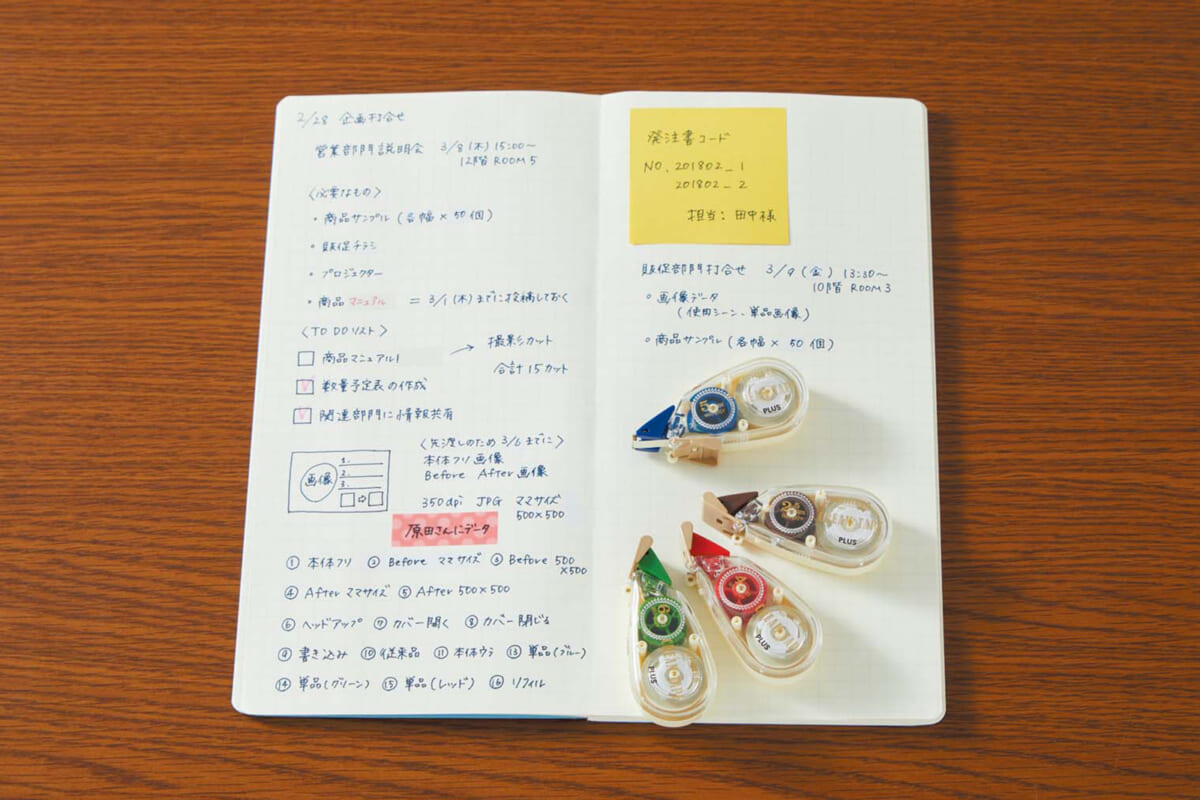 2/28 企画打合せ
営業部門説明会 3/8(木)15:00~
12階 ROOM 5
<必要なもの>
・商品サンプル(各幅×50個)
・販促チラシ
・プロジェクター
・商品マニュアル = 3/1(木)までに投稿しておく
<TO DOリスト>
商品マニュアル!
数量予定表の作成
関連部門に情報共有
撮影シカット
合計15カット
<先渡しのため 3/6までに>
本体フリ画像
Before After 画像
350dpi JPG ママサイズ
500×500
画像
1.
2.
3.
原田さんにデータ
① 本体フリ ② Before ママサイズ ③ Before 500
×500
④ After ママサイズ ⑤ After 500×500
⑥ ヘッドアップ ⑦ カバー開く ⑧ カバー閉じる
⑨ 書き込み ⑩ 従来品 ⑪ 本体ウラ ⑬ 単品(ブルー)
⑭ 単品(グリーン) ⑮ 単品(レッド) ⑯ リフィル
発注書コード
NO. 201802_1
201802_2
担当:田中様
販促部門打合せ 3/9(金)13:30~
10階 ROOM 3
。画像データ
(使用シーン、単品画像)
。商品サンプル(各幅×50個)
PLUS
PLUS
PLUS
PLUS